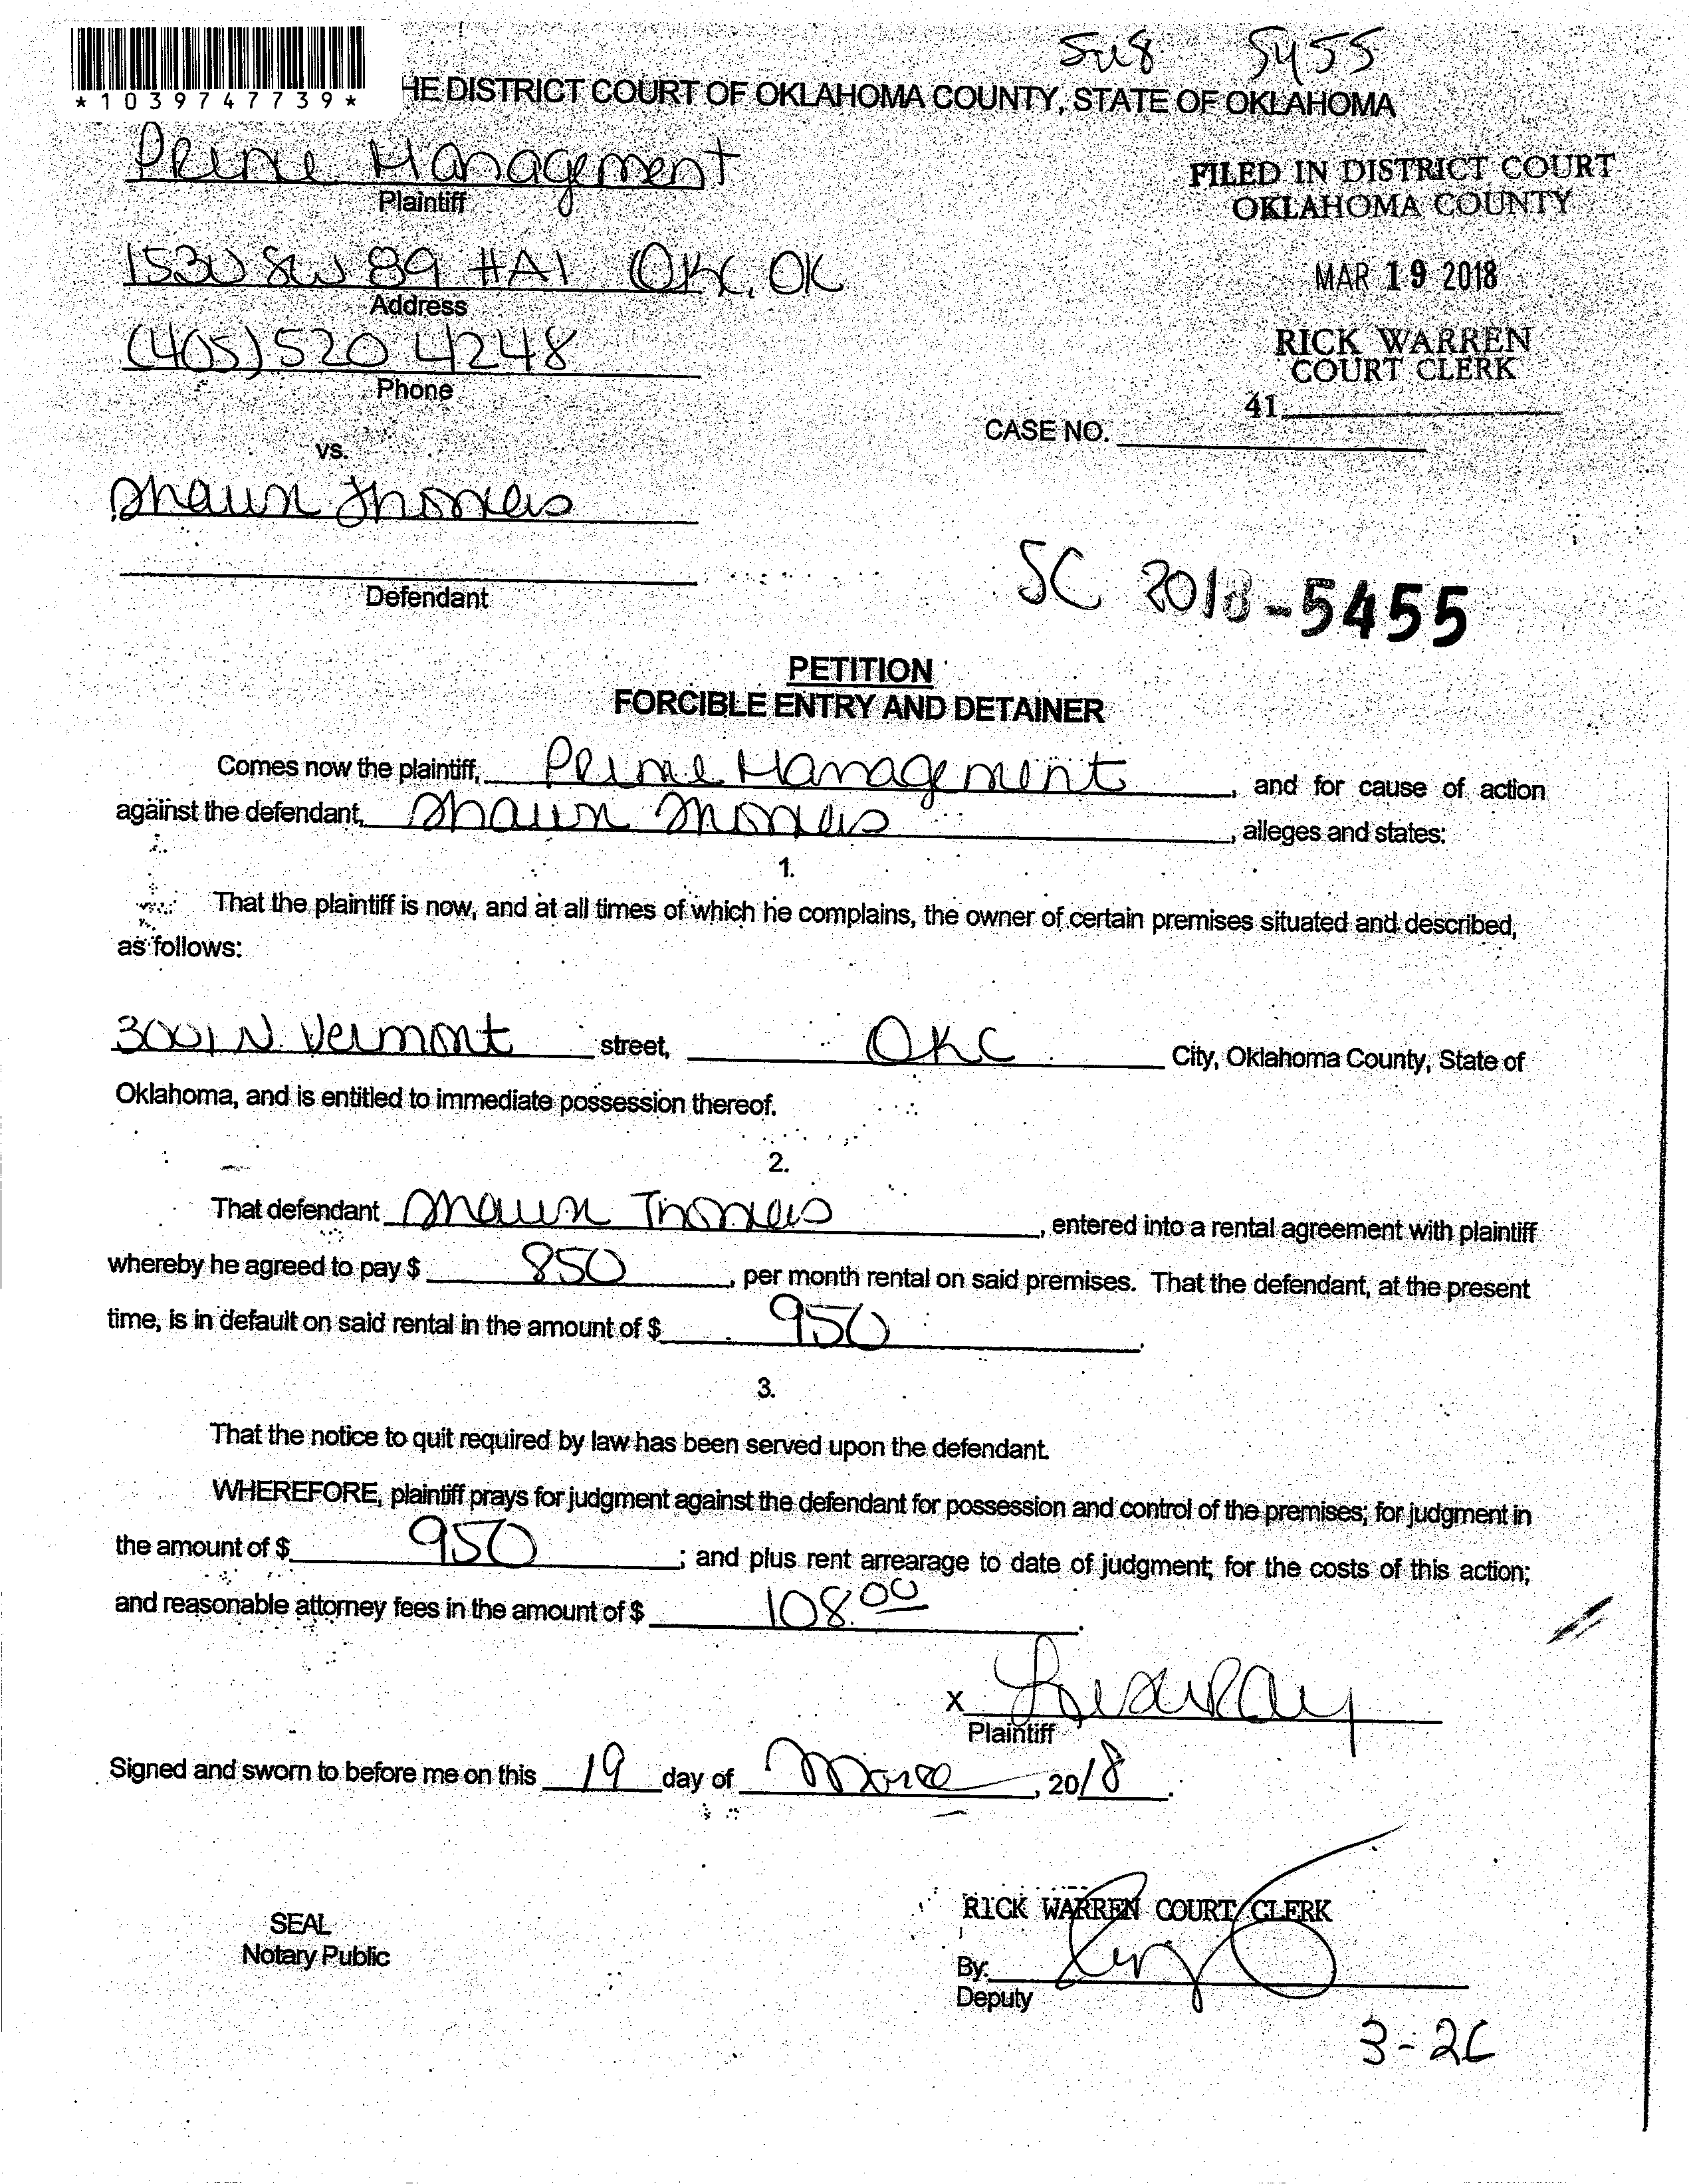 5455
*1039747739*
HE DISTRICT COURT OF OKLAHOMA COUNTY, STATE OF OKLAHOMA
Prime Management
Plaintiff
FILED IN DISTRICT COURT
OKLAHOMA COUNTY
1530 SW 89 #A1 OKC, OK
Address
MAR 19 2018
(405) 520 4248
Phone
RICK WARREN
COURT CLERK
41
CASE NO.
vs.
Shaun Thomas
Defendant
SC 2018-5455
PETITION
FORCIBLE ENTRY AND DETAINER
Comes now the plaintiff, Prime Management, and for cause of action
against the defendant, Shaun Thomas, alleges and states:
1.
That the plaintiff is now, and at all times of which he complains, the owner of certain premises situated and described,
as follows:
3001 N. Vermont street, OKC City, Oklahoma County, State of
Oklahoma, and is entitled to immediate possession thereof.
2.
That defendant Shaun Thomas, entered into a rental agreement with plaintiff
whereby he agreed to pay $ 850, per month rental on said premises. That the defendant, at the present
time, is in default on said rental in the amount of $ 950.
3.
That the notice to quit required by law has been served upon the defendant.
WHEREFORE, plaintiff prays for judgment against the defendant for possession and control of the premises; for judgment in
the amount of $ 950; and plus rent arrearage to date of judgment; for the costs of this action;
and reasonable attorney fees in the amount of $ 108.00.
X
Plaintiff
Signed and sworn to before me on this 19 day of , 2018.
SEAL
Notary Public
RICK WARREN COURT CLERK
By:
Deputy